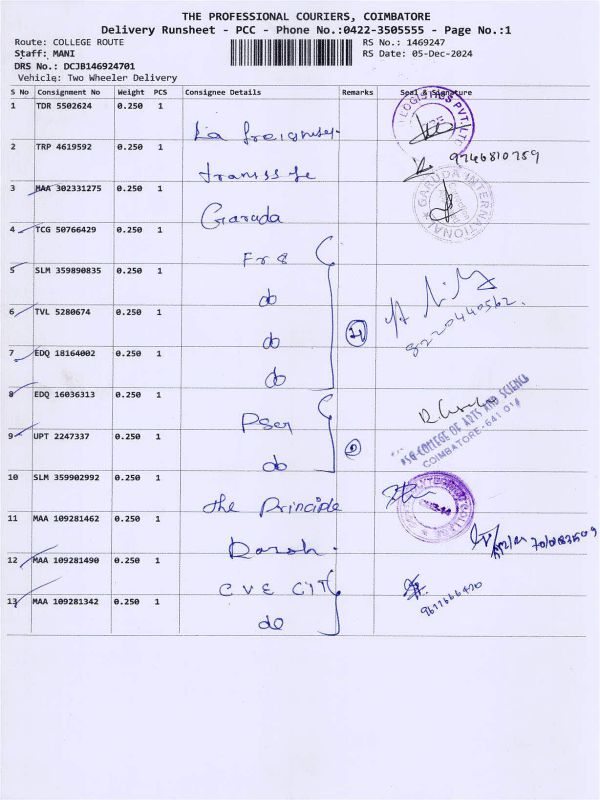 THE PROFESSIONAL COURIERS, COIMBATORE
Delivery Runsheet - PCC - Phone No.:0422-3505555 - Page No.:1
Route: COLLEGE ROUTE RS No.: 1469247
Staff: MANI RS Date: 05-Dec-2024
DRS No.: DCJB146924701
Vehicle: Two Wheeler Delivery
S No Consignment No Weight PCS Consignee Details Remarks Seal & Signature
1 TDR 5502624 0.250 1 LOGISTICS PVT LTD
2 TRP 4619592 0.250 1 9746810759
3 MAA 302331275 0.250 1 Garuda GARUDA INTERNATIONAL
4 TCG 50766429 0.250 1
5 SLM 359890835 0.250 1 do
6 TVL 5280674 0.250 1 do 4 8220440562.
7 EDQ 18164002 0.250 1 do
8 EDQ 16036313 0.250 1
9 UPT 2247337 0.250 1 do COLLEGE OF ARTS AND SCIENCE
COIMBATORE-641 014
10 SLM 359902992 0.250 1 the Principle COLLEGE
11 MAA 109281462 0.250 1
12 MAA 109281490 0.250 1 CIT
13 MAA 109281342 0.250 1 do